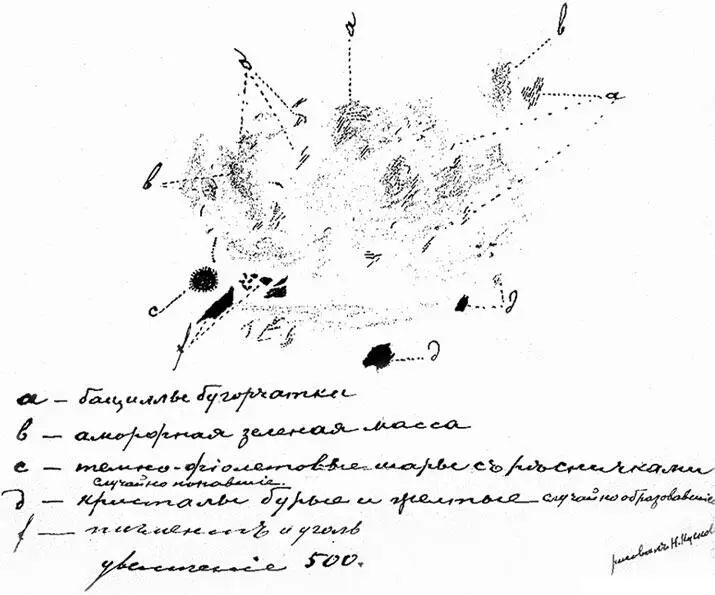 а
в
д
а
в
с
д
f
д
а — бациллы бугорчатки
в — аморфная зеленая масса
с — темно-фіолетовые шары съ рѣсничками
случайно попавшіе
д — кристалы бурые и желтые случайно образовавшіе
f — пигментъ и уголь
увеличеніе 500.
рисовалъ Н.